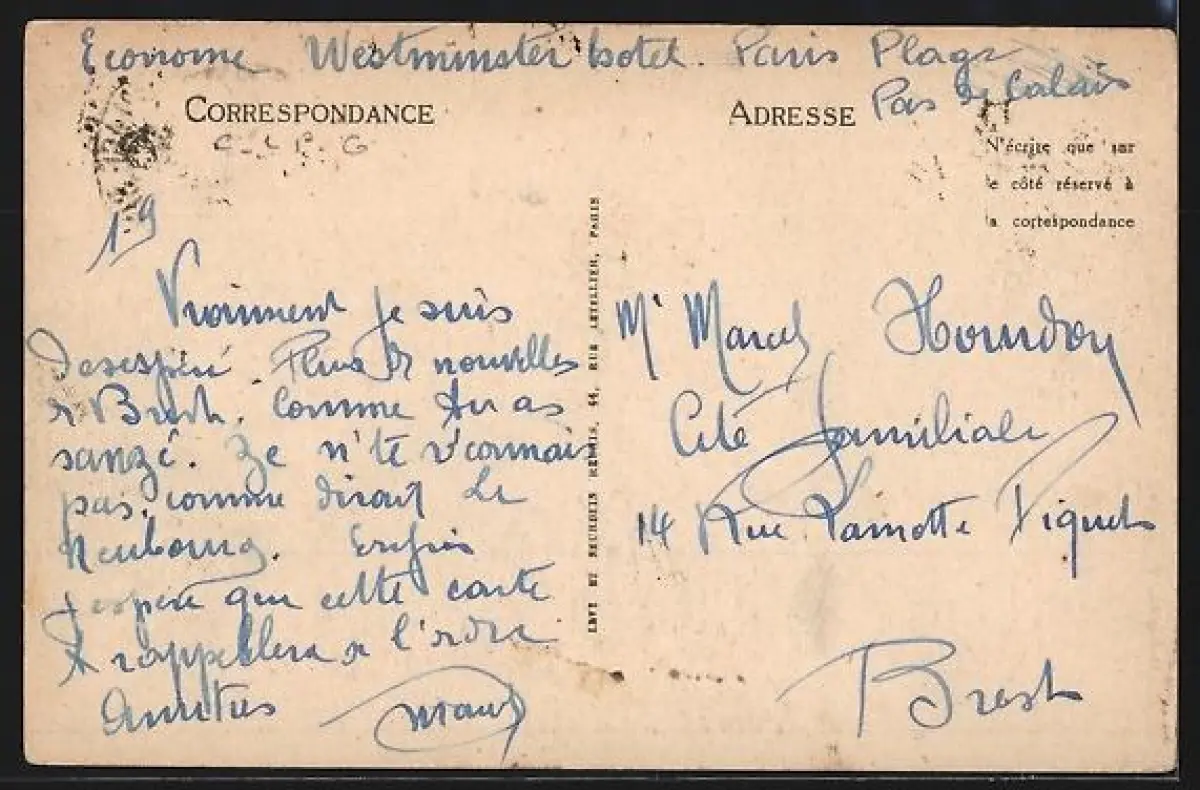 Econome Westminster hotel. Paris Plage
Pas de Calais
CORRESPONDANCE
ADRESSE
N'écrire que sur
le côté réservé à
la correspondance
19
Vraiment je suis
desespéré. Plus de nouvelles
d Brest. Comme tu as
sanzé. Ze n'te r'connais
pas, comme disait Le
Neubourg. Enfin
j'espère que cette carte
te rappellera a l'ordre
Amitiés
LEVY ET NEURDEIN REUNIS, 44, RUE LETELLIER, PARIS
Mr Marcel Hourdon
Cité familiale
14 Rue Lamotte Piquet
Brest